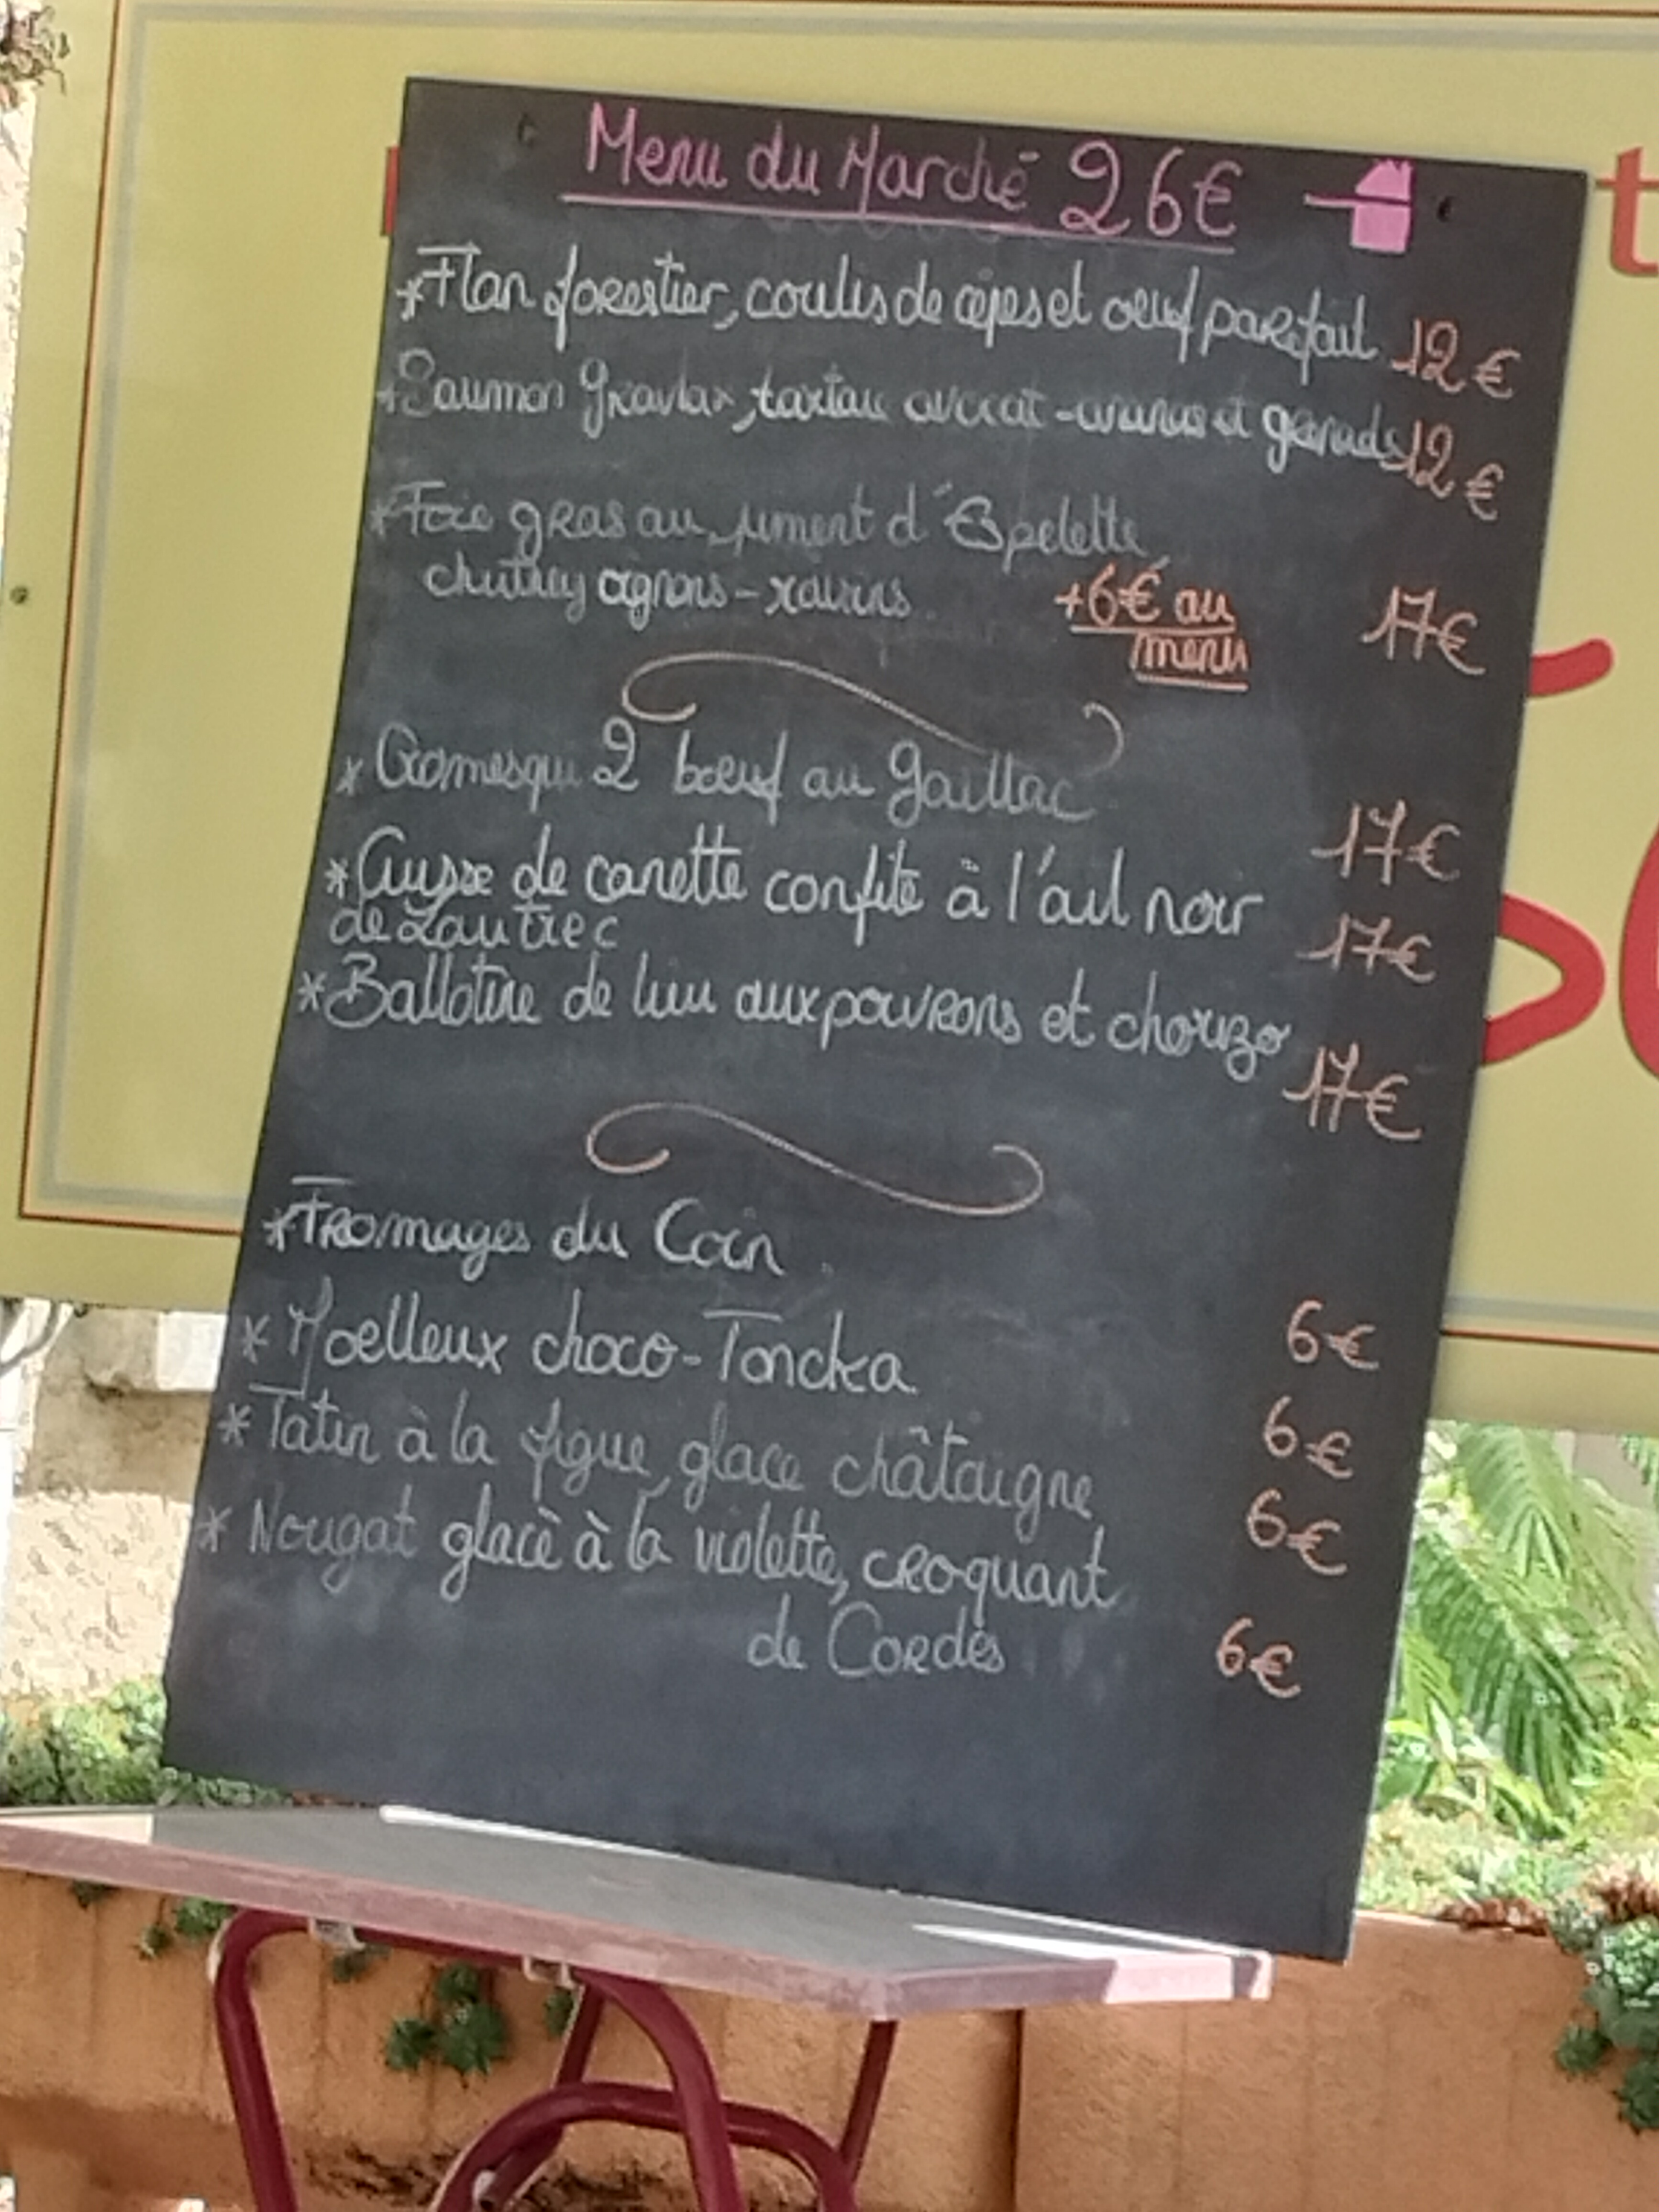 Menu du Marché 26€
*Flan forestier, coulis de cèpes et oeuf parfait 12€
*Saumon Gravlax, tartare avocat-ananas et grenade 12€
*Foie gras au piment d'Espelette,
chutney oignons-raisins +6€ au 17€
menu
* Cromesqui 2 boeuf au Gaillac 17€
*Cuisse de canette confite à l'ail noir
de Lautrec 17€
*Ballotine de lieu aux poivrons et chorizo
17€
*Fromages du Coin 6€
* Moelleux choco-Toncka 6€
* Tatin à la figue, glace châtaigne 6€
* Nougat glacé à la violette, croquant
de Cordes 6€
t